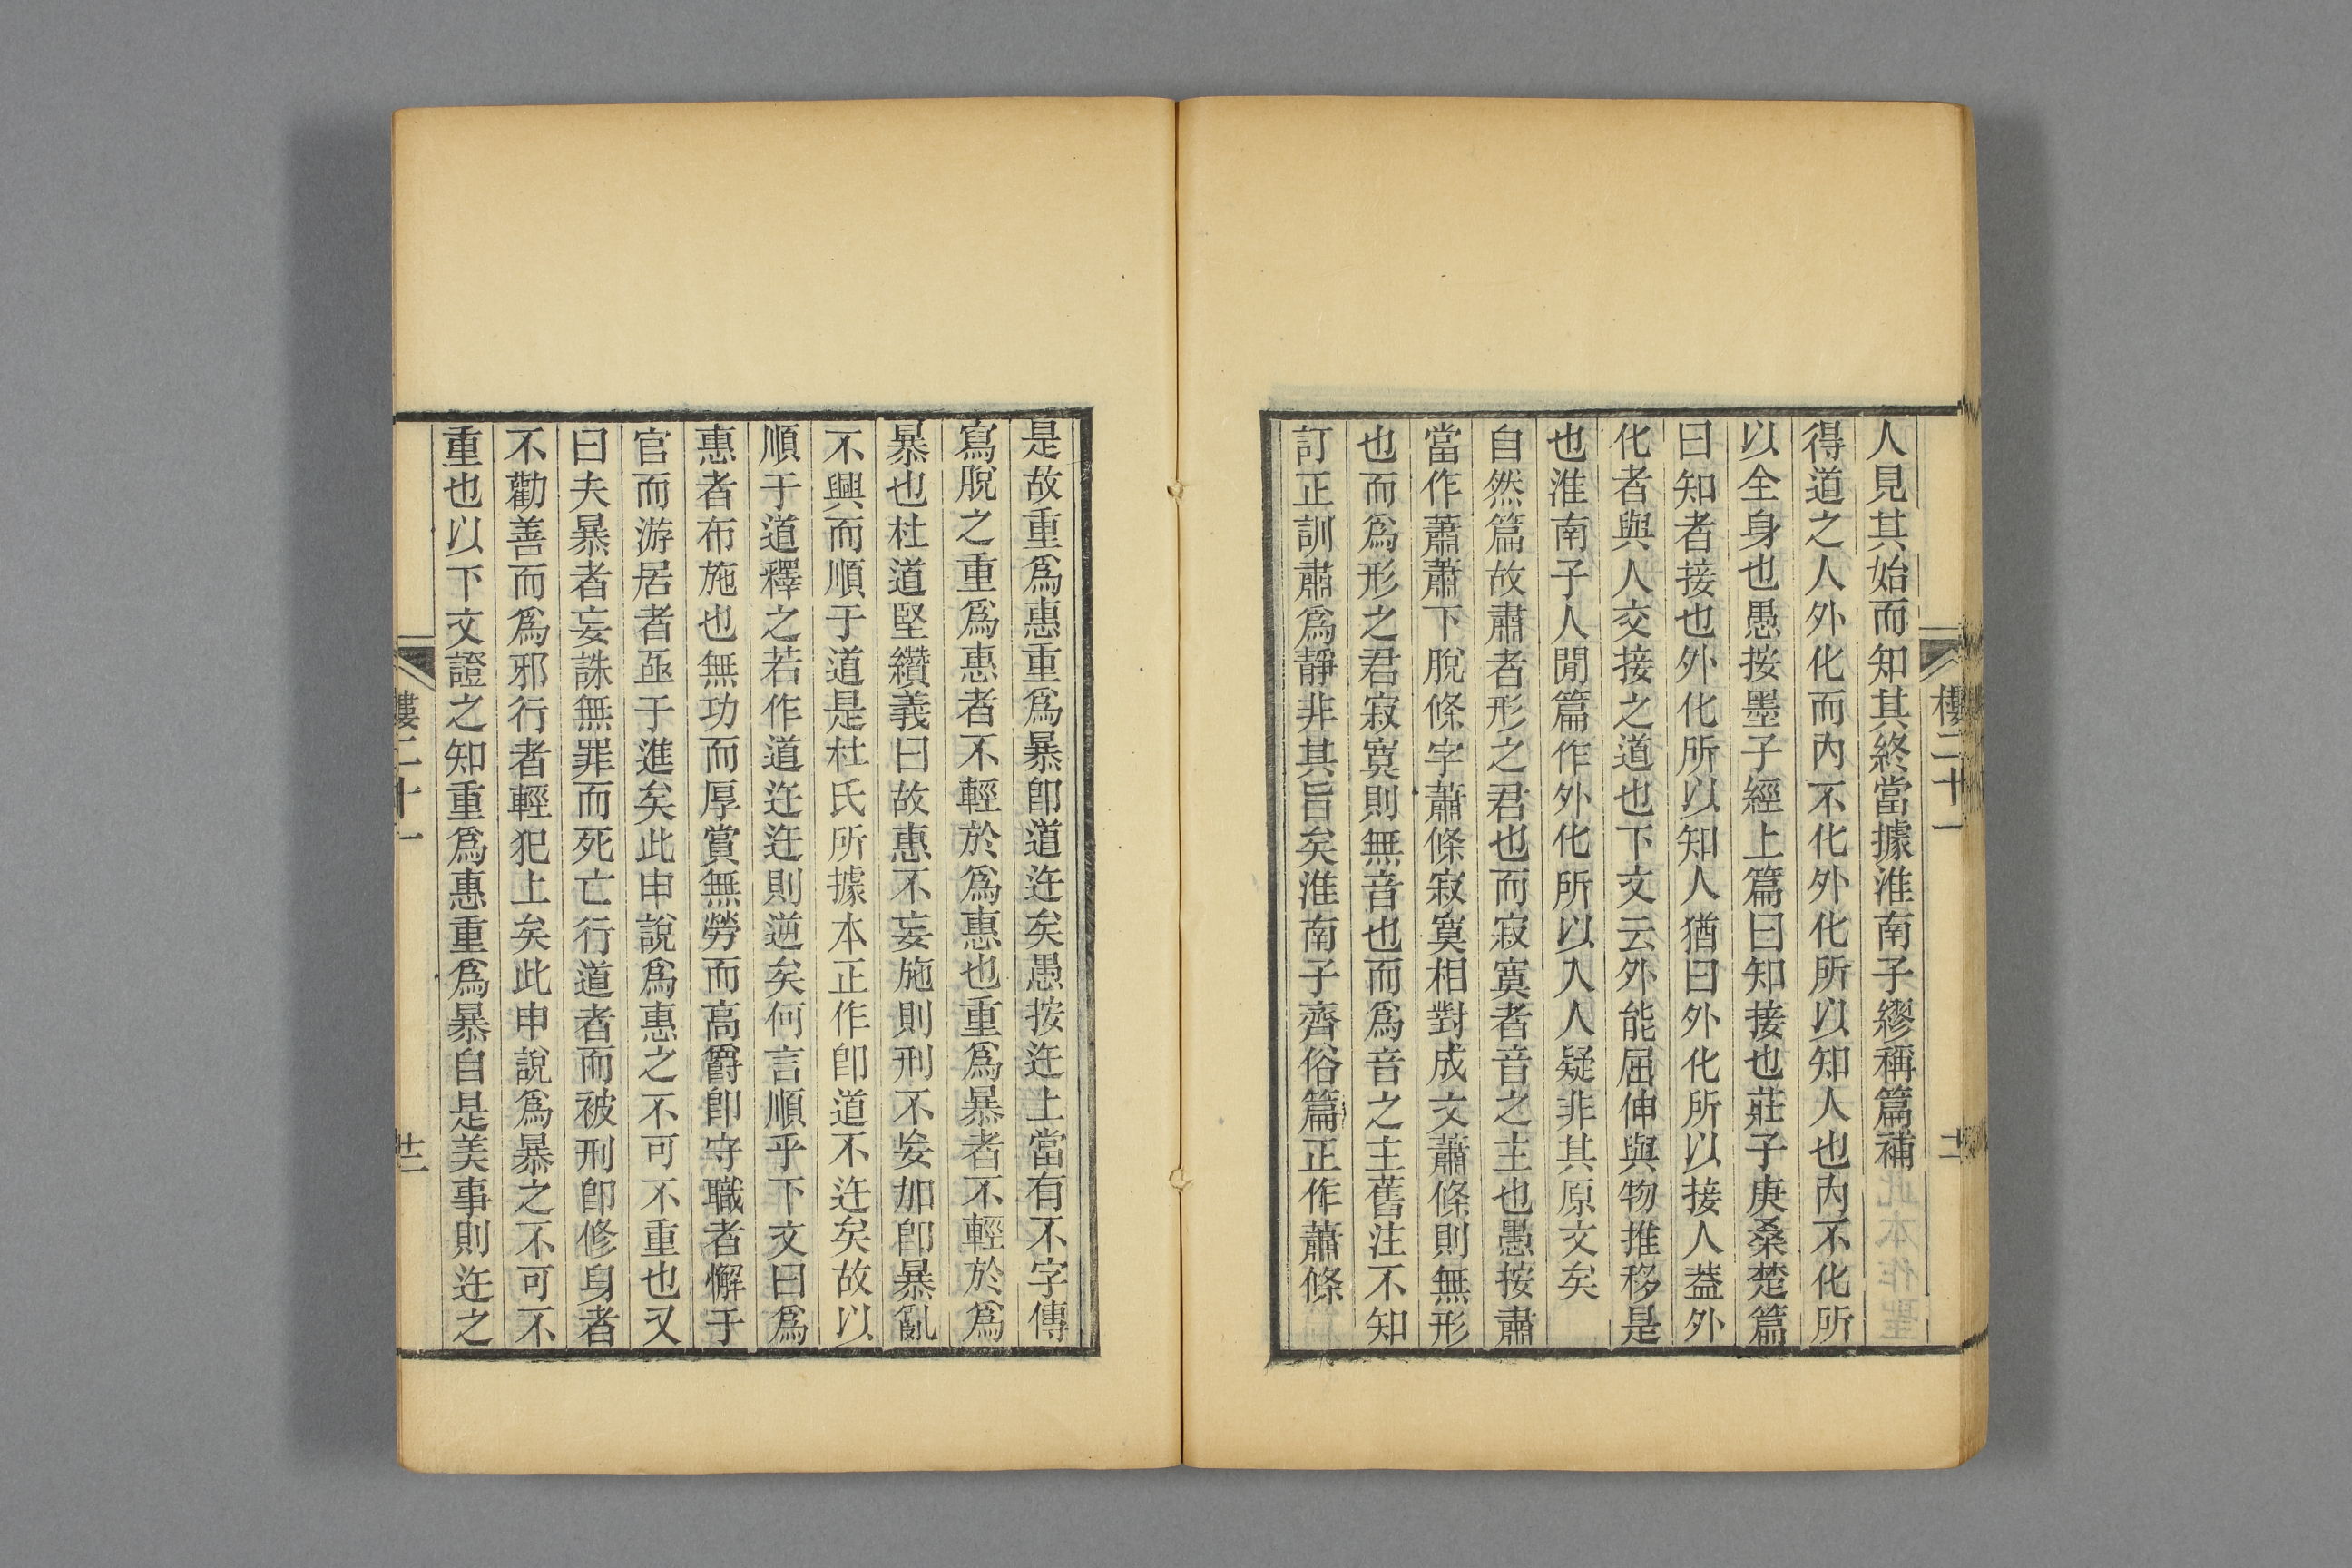 人見其始而知其終當據淮南子繆稱篇補
得道之人外化而內不化外化所以知人也內不化所
以全身也愚按墨子經上篇曰知接也莊子庚桑楚篇
曰知者接也外化所以知人猶曰外化所以接人葢外
化者與人交接之道也下文云外能屈伸與物推移是
也淮南子人閒篇作外化所以入人疑非其原文矣
自然篇故肅者形之君也而寂寞者音之主也愚按肅
當作蕭蕭下脫條字蕭條寂寞相對成文蕭條則無形
也而爲形之君寂寞則無音也而爲音之主舊注不知
訂正訓肅爲靜非其旨矣淮南子齊俗篇正作蕭條
是故重爲惠重爲暴卽道迕矣愚按迕上當有不字傳
寫脫之重爲惠者不輕於爲惠也重爲暴者不輕於爲
暴也杜道堅纘義曰故惠不妄施則刑不妄加卽暴亂
不興而順于道是杜氏所據本正作卽道不迕矣故以
順于道釋之若作道迕迕則逆矣何言順乎下文曰爲
惠者布施也無功而厚賞無勞而高爵卽守職者懈于
官而游居者亟于進矣此申說爲惠之不可不重也又
曰夫暴者妄誅無罪而死亡行道者而被刑卽修身者
不勸善而爲邪行者輕犯上矣此申說爲暴之不可不
重也以下文證之知重爲惠重爲暴自是美事則迕之
樓二十一
廿二